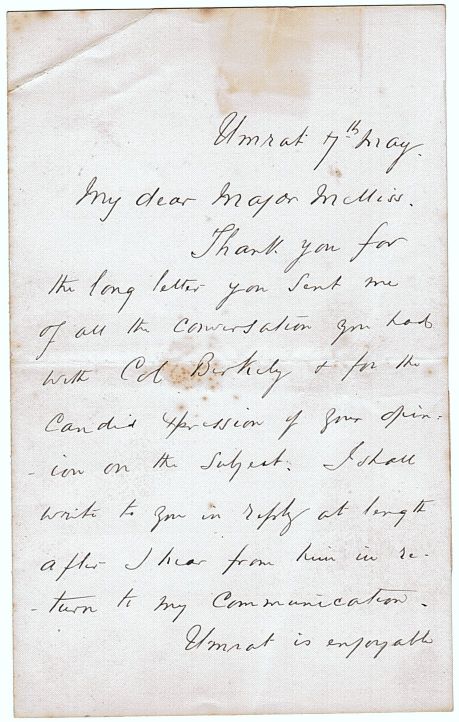 Umrat 7th May.
My dear Major McMiss.
Thank you for
the long letter you sent me
of all the conversation you had
with Col Berkely & for the
candid xpression of your opin-
-ion on the subject. I shall
write to you in reply at length
after I hear from him in re-
-turn to my communication.
Umrat is enjoyable